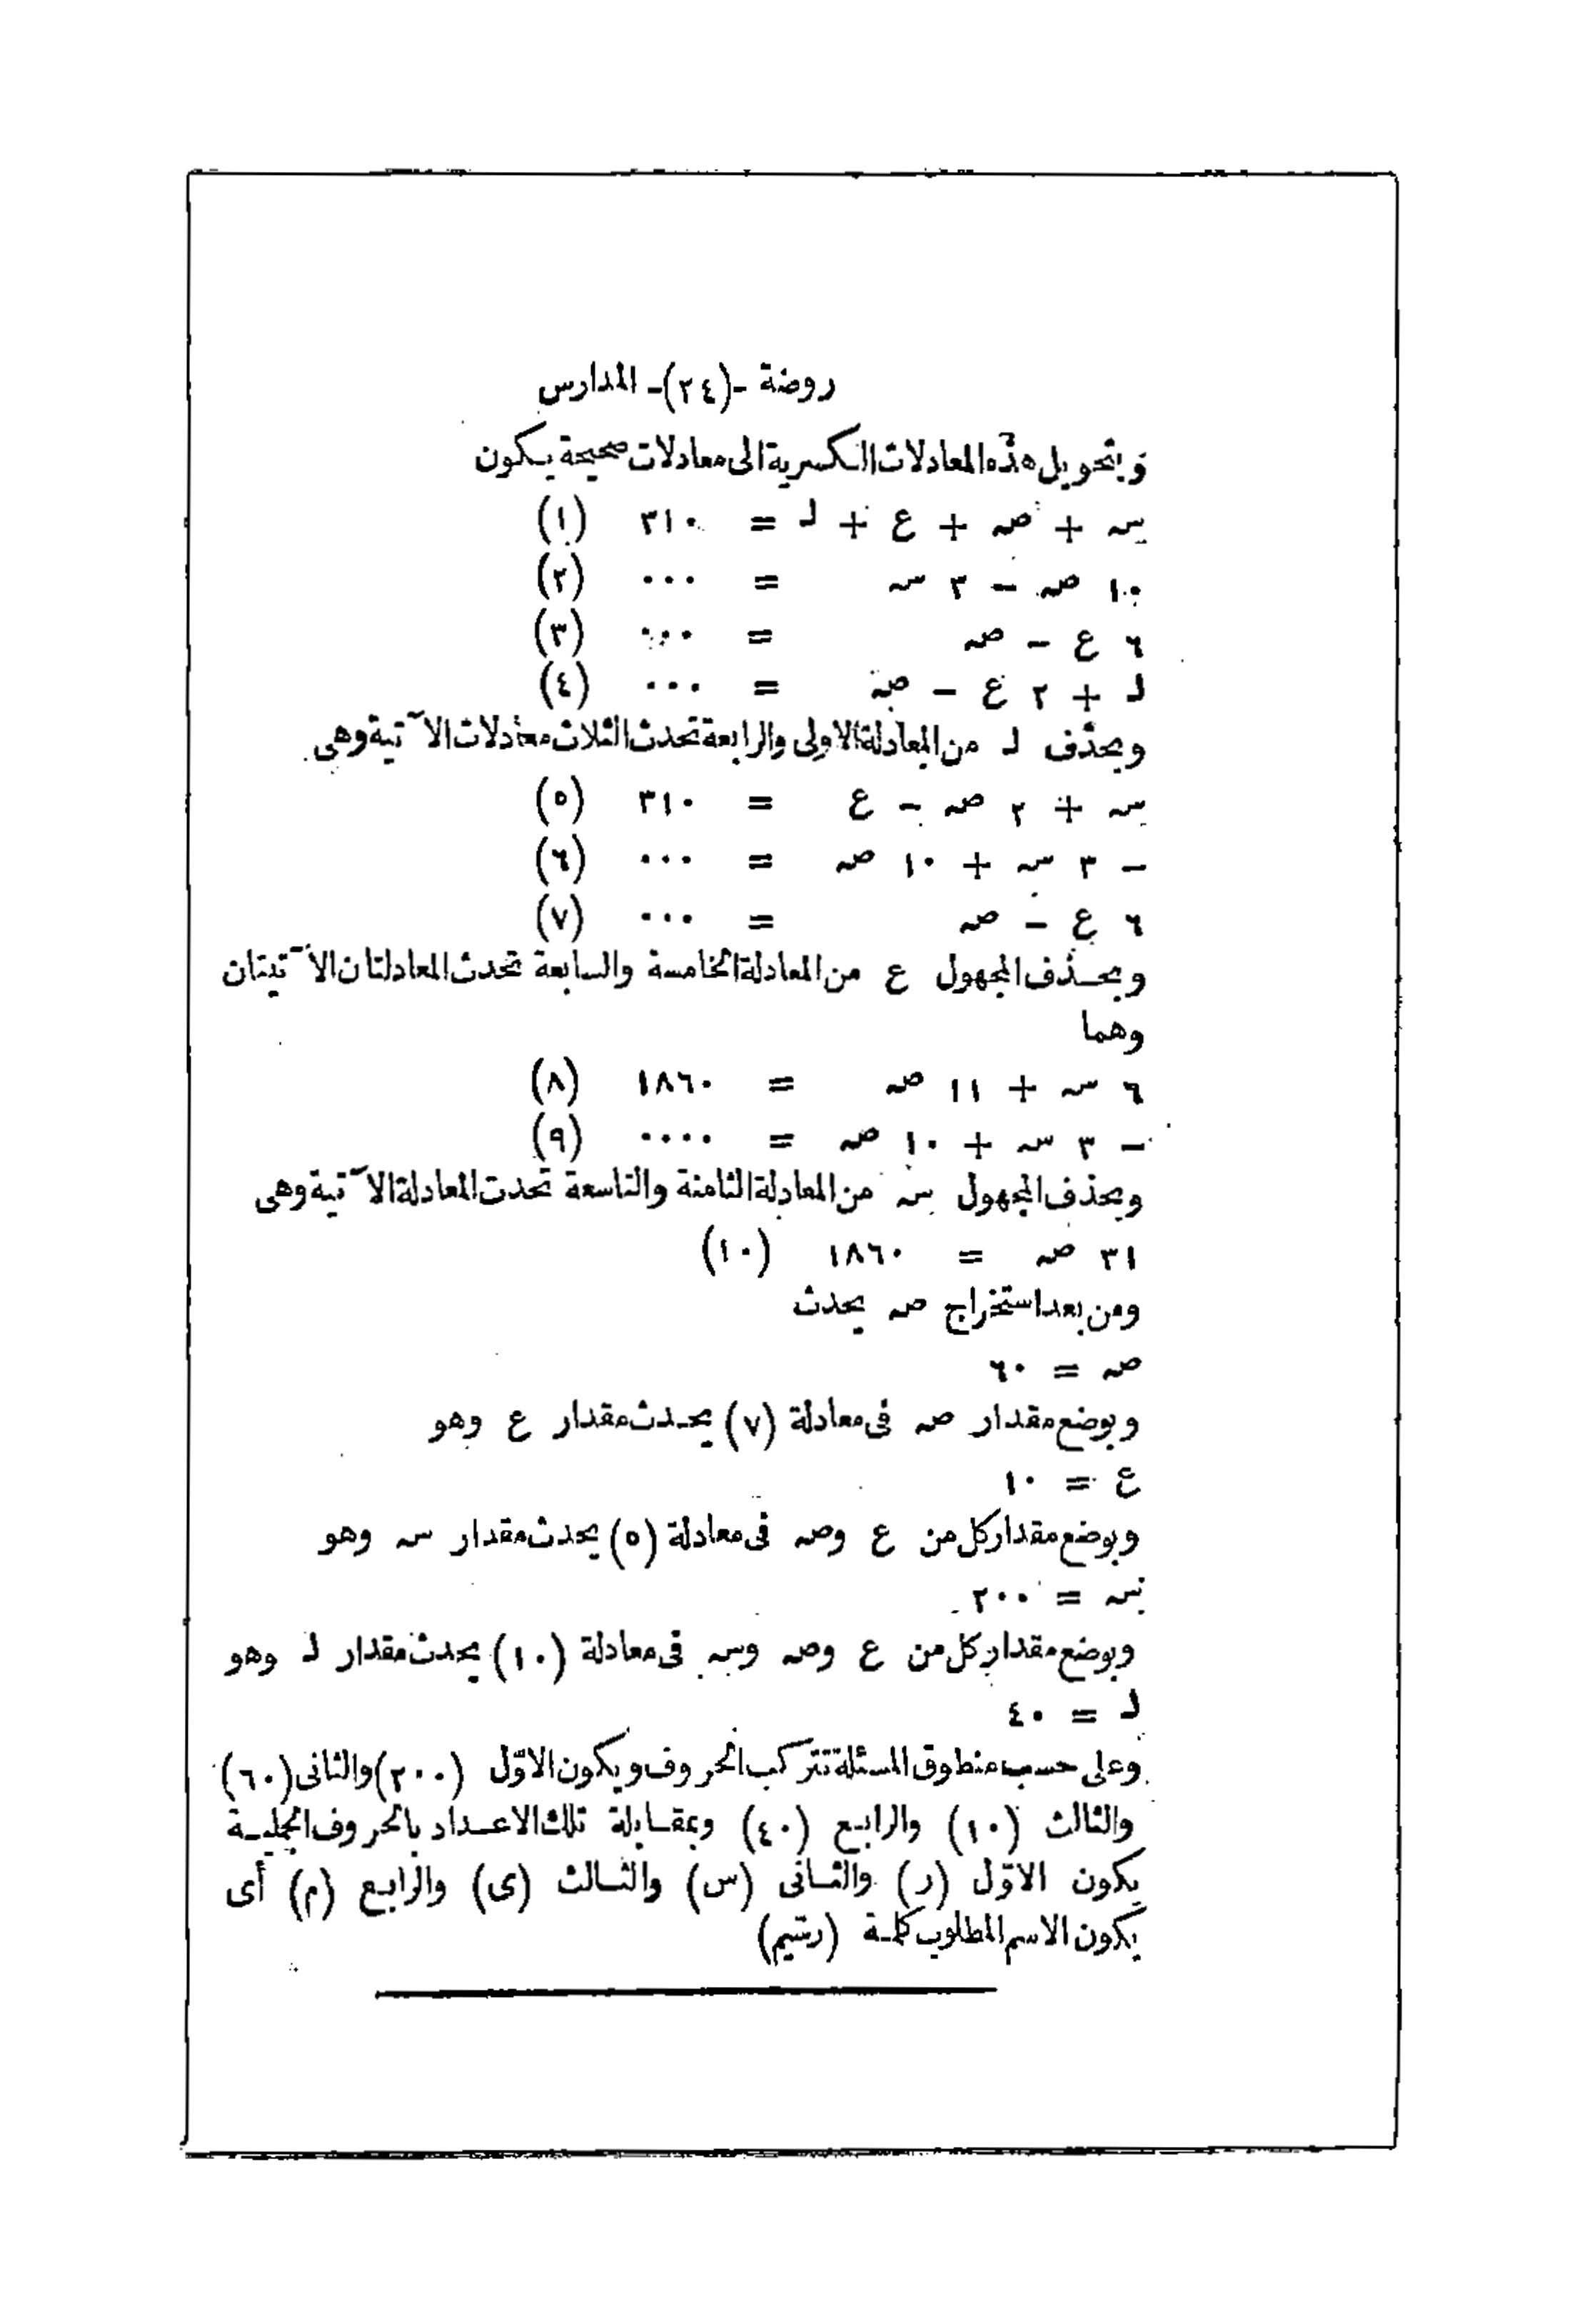 روضة -(٢٤)- المدارس
وبتحويل هذه المعادلات الكسرية الى معادلات صحيحة يكون
سه + صه + ع + لـ = ٣١٠ (١)
١٠ صه – ٣ سه = ٠٠٠ (٢)
٦ ع – صه = ٠٠٠ (٣)
لـ + ٢ ع – صه = ٠٠٠ (٤)
وبحذف لـ من المعادلة الاولى والرابعة تحدث الثلاث معادلات الآتية وهى
سه + ٢ صه – ع = ٣١٠ (٥)
– ٣ سه + ١٠ صه = ٠٠٠ (٦)
٦ ع – صه = ٠٠٠ (٧)
وبحذف المجهول ع من المعادلة الخامسة والسابعة تحدث المعادلتان الآتيتان
وهما
٦ سه + ١١ صه = ١٨٦٠ (٨)
– ٣ سه + ١٠ صه = ٠٠٠٠ (٩)
وبحذف المجهول سه من المعادلة الثامنة والتاسعة تحدث المعادلة الآتية وهى
٣١ صه = ١٨٦٠ (١٠)
ومن بعد استخراج صه يحدث
صه = ٦٠
وبوضع مقدار صه فى معادلة (٧) يحدث مقدار ع وهو
ع = ١٠
وبوضع مقدار كل من ع وصه فى معادلة (٥) يحدث مقدار سه وهو
سه = ٢٠٠
وبوضع مقدار كل من ع وصه وسه فى معادلة (١٠) يحدث مقدار لـ وهو
لـ = ٤٠
وعلى حسب منطوق المسئلة تتركب الحروف ويكون الاوّل (٢٠٠) والثانى (٦٠)
والثالث (١٠) والرابع (٤٠) وبمقابلة تلك الاعداد بالحروف الجملية
يكون الاوّل (ر) والثانى (س) والثالث (ى) والرابع (م) أى
يكون الاسم المطلوب كلمة (رسيم)